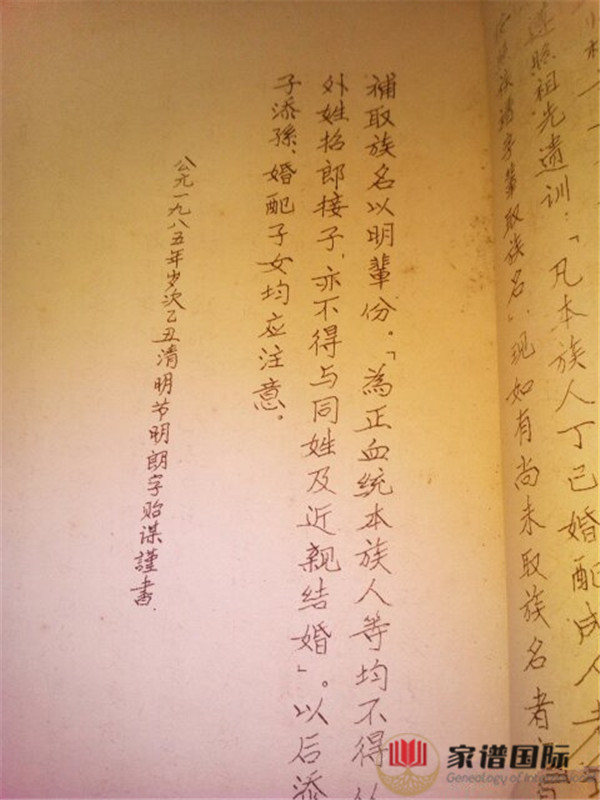 遵照祖先遗训:「凡本族人丁已婚配成人
字輩取族名」,现如有尚未取族名者
補取族名以明輩份。「為正血统本族人等均不得
外姓招郎接子,亦不得与同姓及近亲结婚」。以后添
子添孫、婚配子女均应注意。
公元一九八五年岁次乙丑清明节明朗字贻谋謹書.
家谱国际